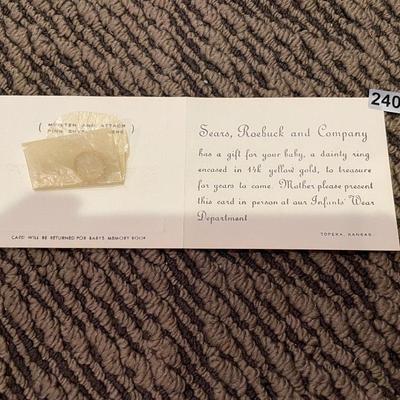 240
( MOISTEN AND ATTACH
PINK
Sears, Roebuck and Company
has a gift for your baby, a dainty ring
encased in 14k yellow gold, to treasure
for years to come. Mother please present
this card in person at our Infants' Wear
Department
TOPEKA, KANSAS.
CARD WILL BE RETURNED FOR BABYS MEMORY BOOK